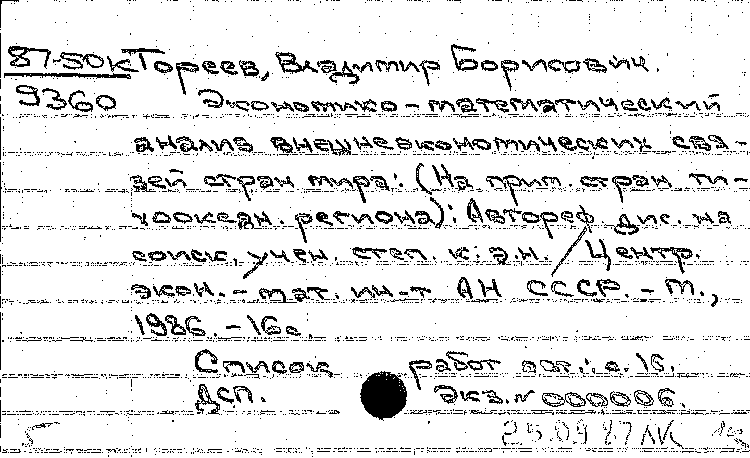 87-50К Тореев, Владимир Борисович.
9360 Экономико-математический
анализ внешнеэкономических свя-
зей стран мира: (На прим. стран ти-
хоокеан. региона): Автореф. дис. на
соиск. учен. степ. к. э. н. / Центр.
экон.-мат. ин-т АН СССР. - М.,
1986. - 16 с.
Список работ авт.: с. 16.
ДСП. Экз. N 000006.
5 25.09.87 ЛК